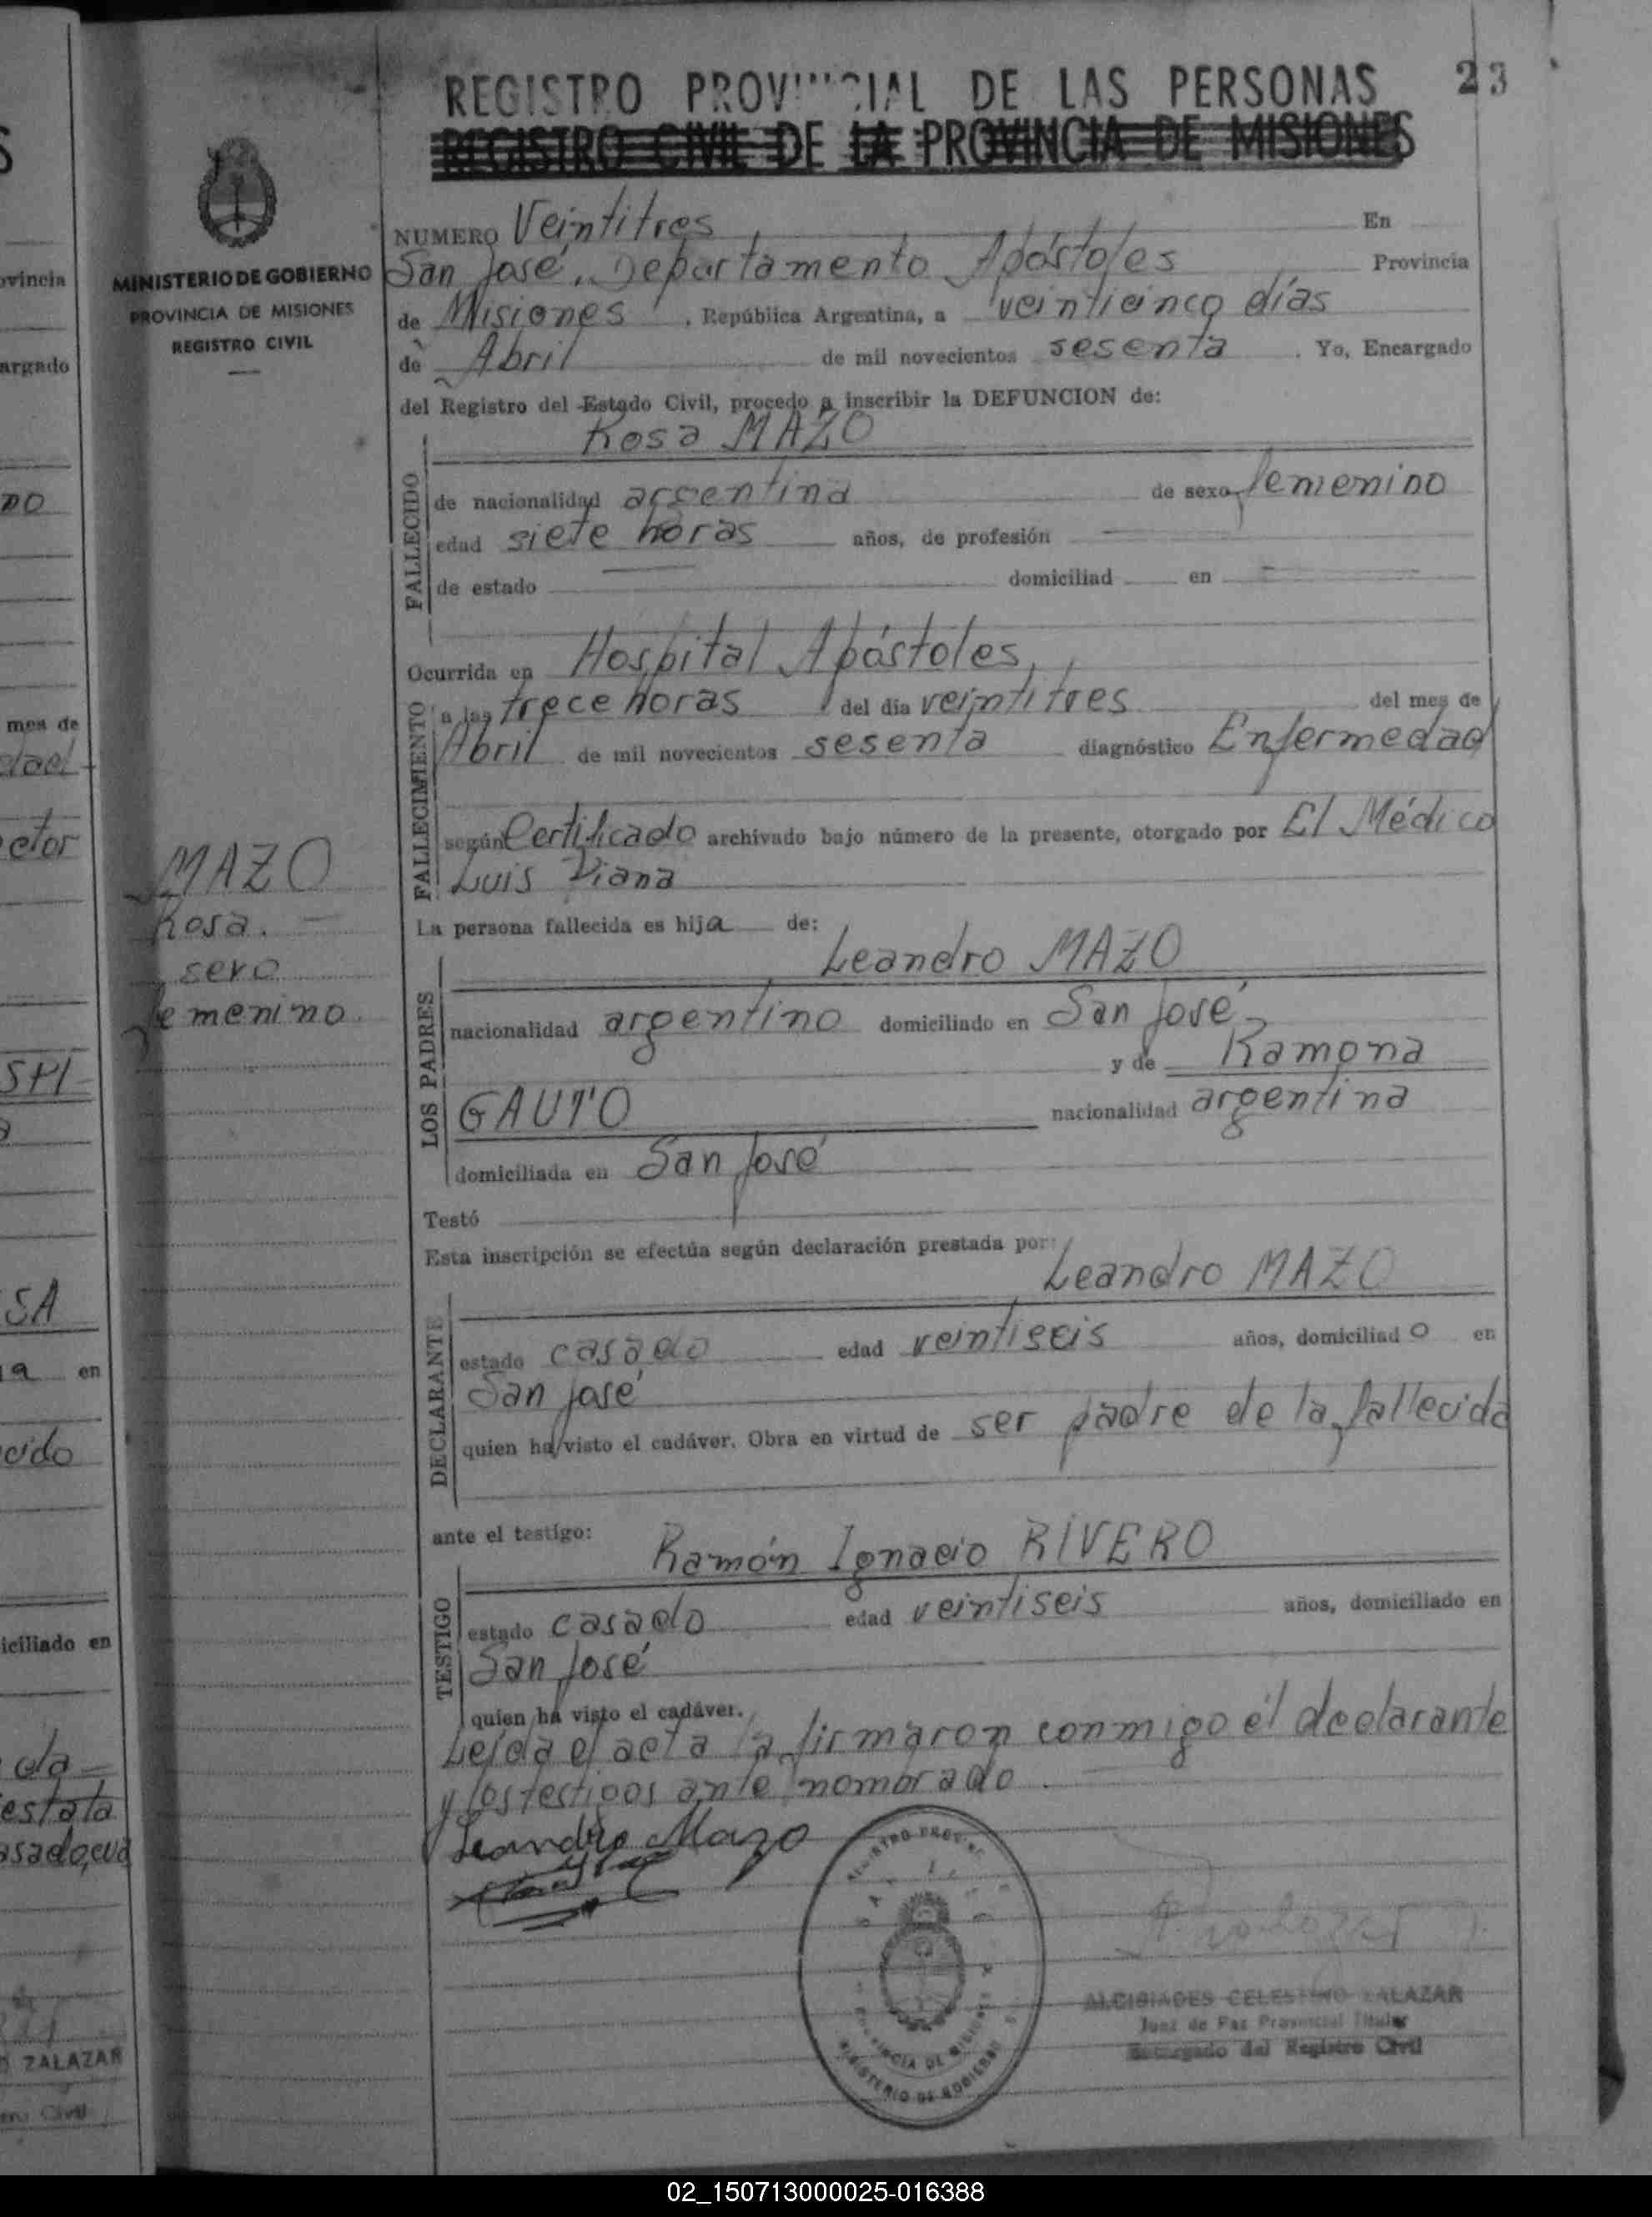 REGISTRO PROVINCIAL DE LAS PERSONAS 23
REGISTRO CIVIL DE LA PROVINCIA DE MISIONES
MINISTERIO DE GOBIERNO
PROVINCIA DE MISIONES
REGISTRO CIVIL
MAZO
Rosa.
sexo
femenino.
NUMERO Veintitres En
San José, Departamento Apóstoles Provincia
de Misiones, República Argentina, a veinticinco días
de Abril de mil novecientos sesenta. Yo, Encargado
del Registro del Estado Civil, procedo a inscribir la DEFUNCION de:
Rosa MAZO
FALLECIDO
de nacionalidad argentina de sexo femenino
edad siete horas años, de profesión
de estado domiciliad en
Ocurrida en Hospital Apóstoles,
FALLECIMIENTO
a las trece horas del día veintitres del mes de
Abril de mil novecientos sesenta diagnóstico Enfermedad
según Certificado archivado bajo número de la presente, otorgado por El Médico
Luis Viana
La persona fallecida es hija de:
Leandro MAZO
LOS PADRES
nacionalidad argentino domiciliado en San José
y de Ramona
GAUTO nacionalidad argentina
domiciliada en San José
Testó
Esta inscripción se efectúa según declaración prestada por:
Leandro MAZO
DECLARANTE
estado casado edad veintiseis años, domiciliado en
San José
quien ha visto el cadáver. Obra en virtud de ser padre de la fallecida
ante el testigo:
Ramón Ignacio RIVERO
TESTIGO
estado casado edad veintiseis años, domiciliado en
San José
quien ha visto el cadáver.
Leída el acta la firmaron conmigo el declarante
y los testigos ante nombrado.
Leandro Mazo
PROVINCIA DE MISIONES
MINISTERIO DE GOBIERNO
ALCIBIADES CELESTINO ZALAZAR
Juez de Paz Provincial Titular
Encargado del Registro Civil
ovincia
argado
no
mes de
dad
ctor
SA
a en
cido
iciliado en
da
estata
ZALAZAR
Civil
02_150713000025-016388